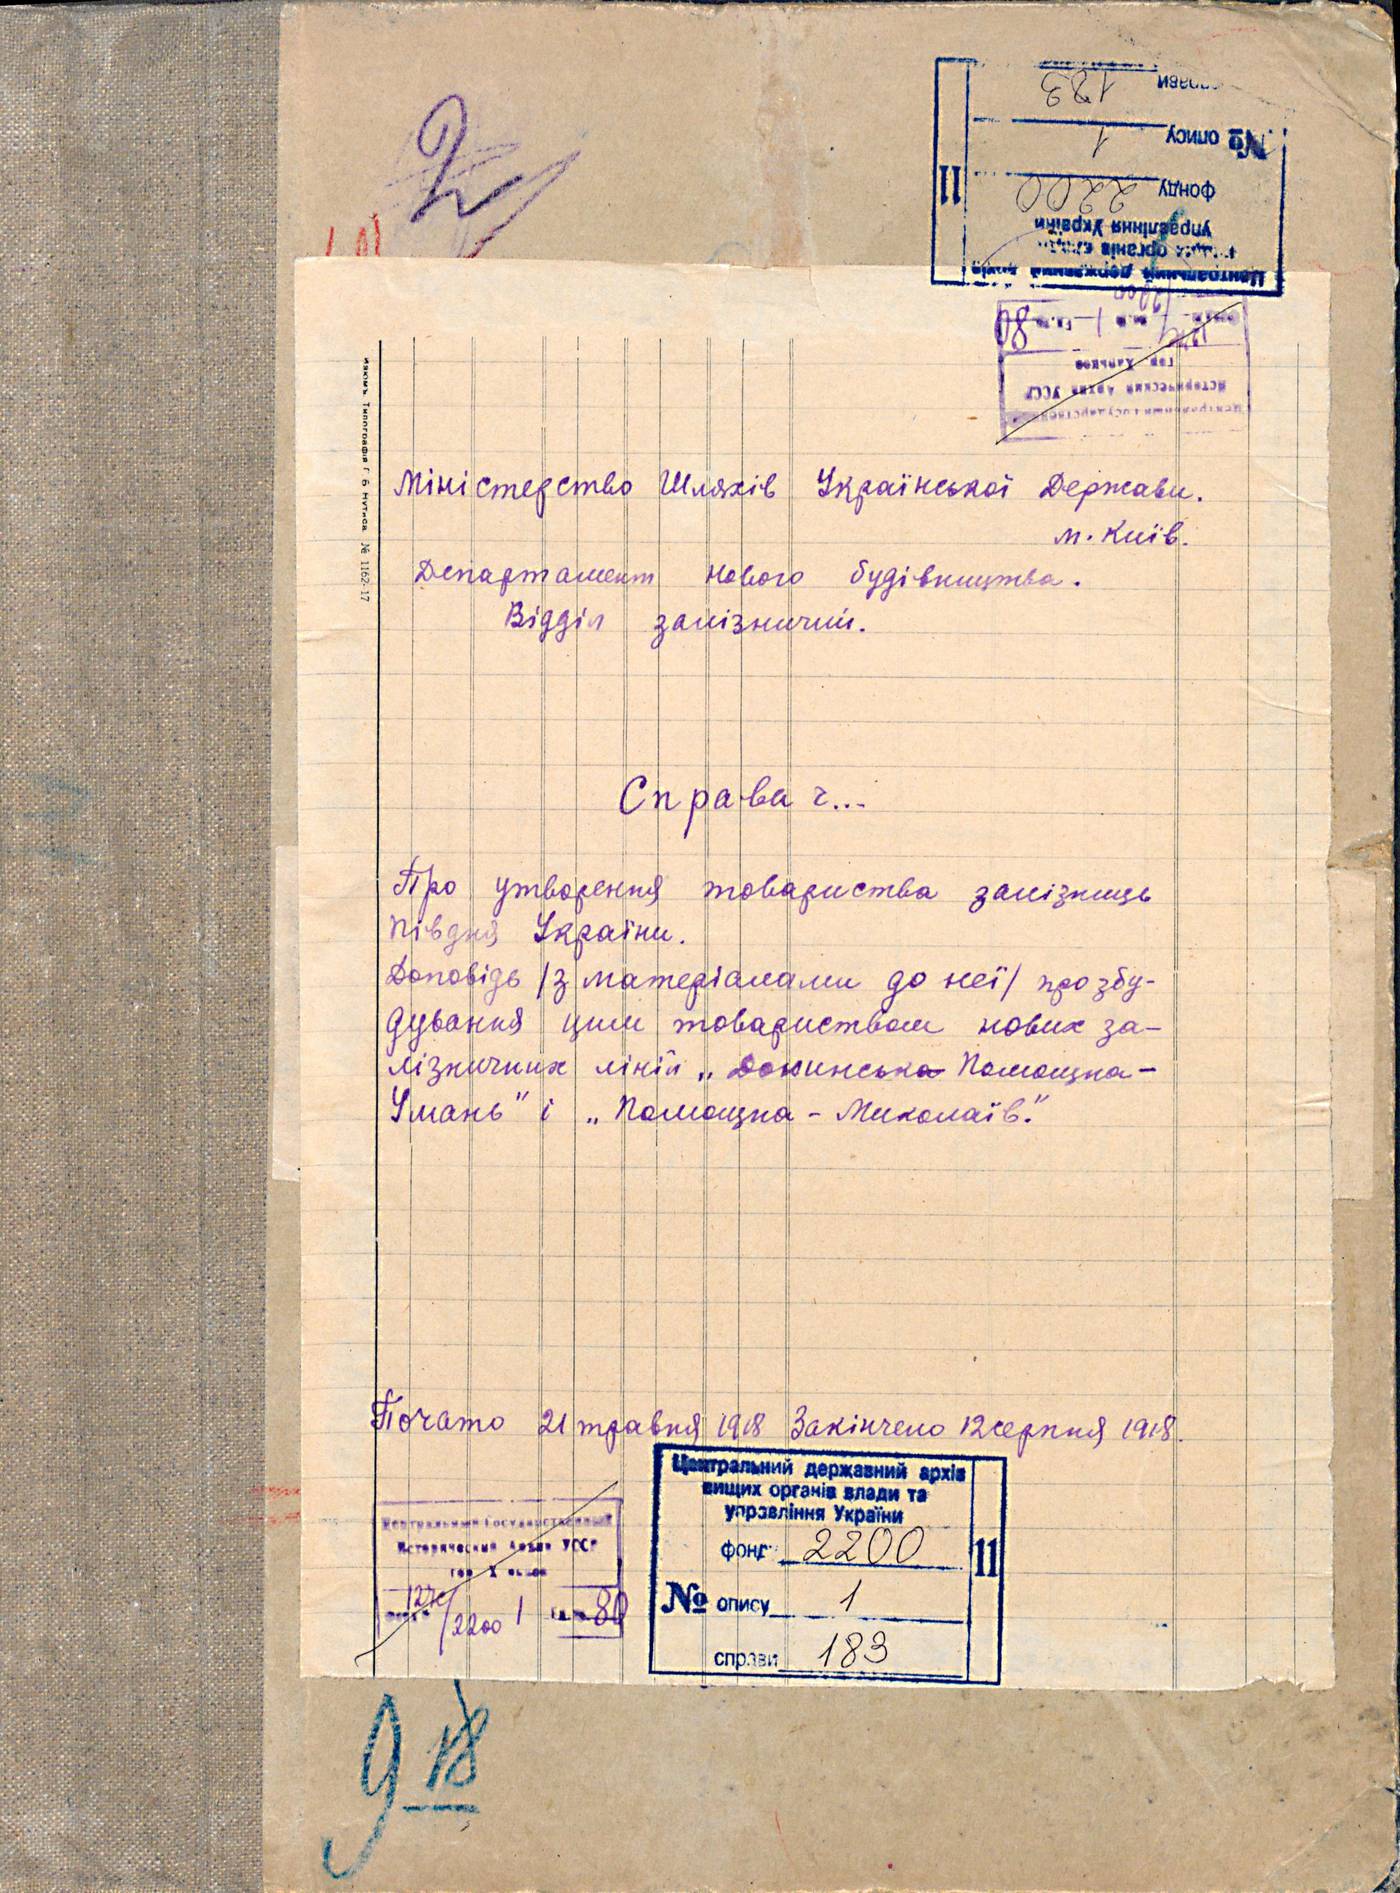 2
справи 183
№ опису 1
фонду 2200
управління України
органів
Центральний державний архів
11
2200
1 80
гор Харьков
Исторический Архив УССР
Центральный Государствен
Типографія Г. Б. Нутиса. № 1162-17
Міністерство Шляхів Української Держави.
м. Київ.
Департамент нового будівництва.
Відділ залізничий.
Справа ч...
Про утворення товариства залізниць
Півдня України.
Доповідь /з матеріалами до неї/ про збу-
дування цим товариством нових за-
лізничних ліній „ Помощна-
Умань" і „Помощна - Миколаїв."
Почато 21 травня 1918 Закінчено 12 серпня 1918.
Центральный Государственный
Исторический Архив УССР
гор Харьков
2200 1 80
Центральний державний архів
вищих органів влади та
управління України
фонду 2200
№ опису 1
справи 183
11
9 18